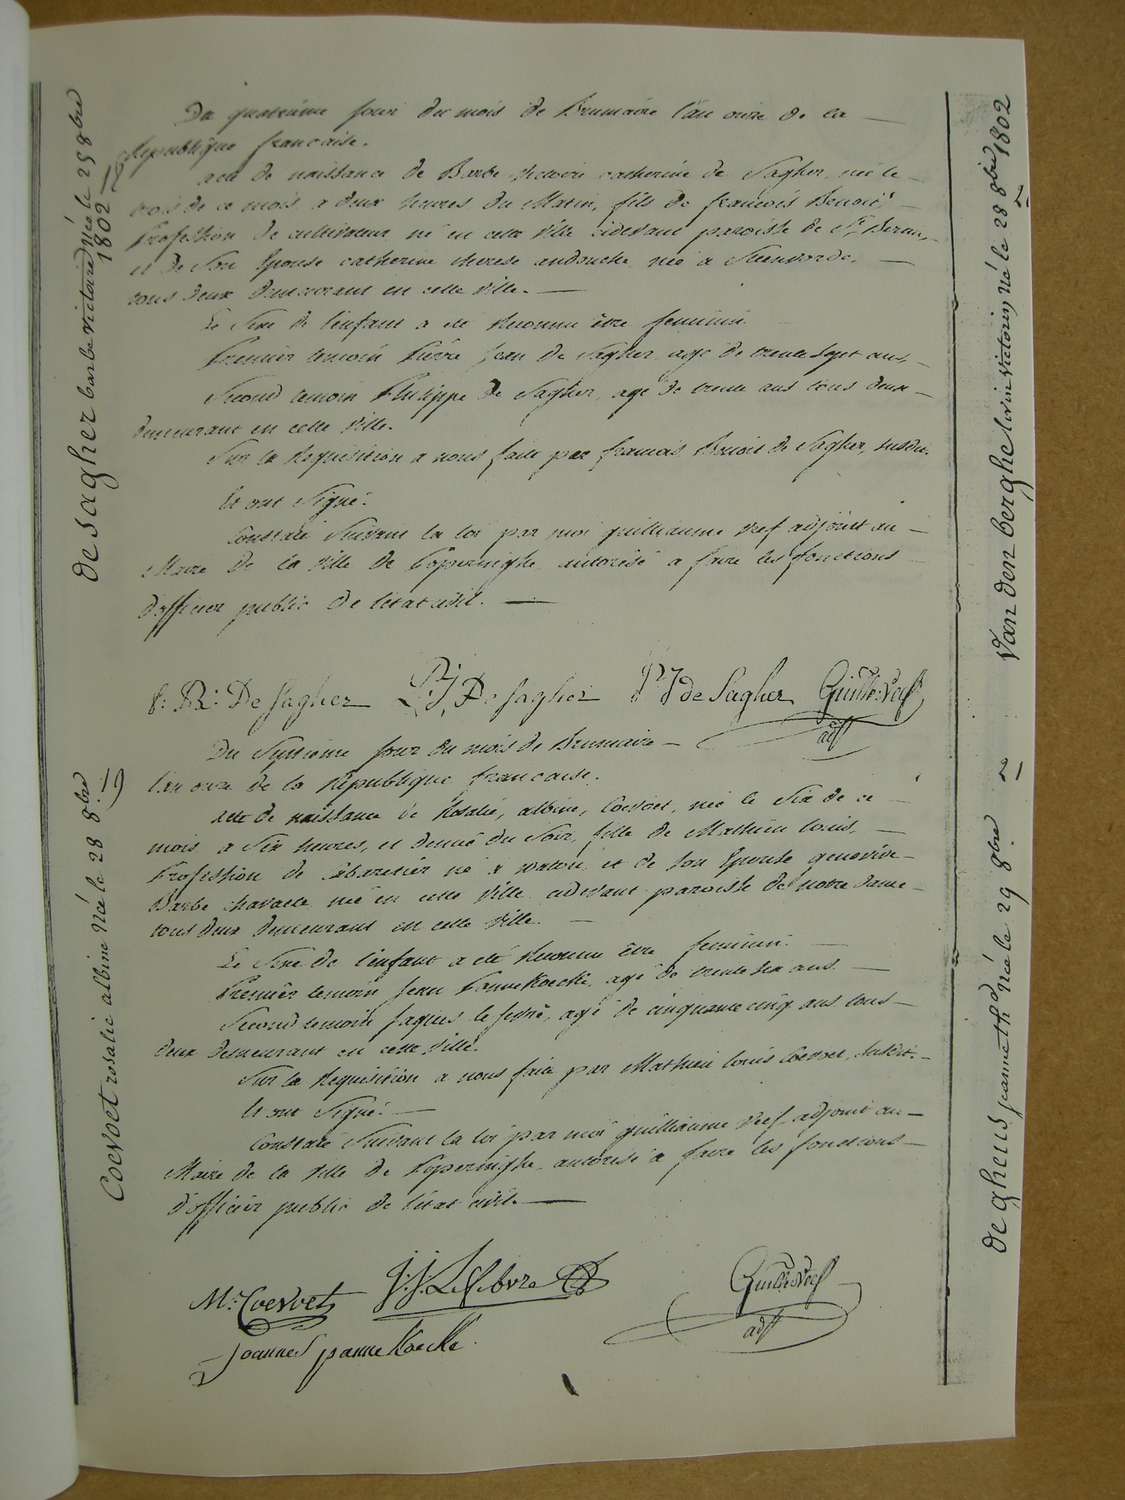 Du quatrième jour du mois de Brumaire l'an onze de la
Republique francaise.
acte de naissance de Barbe Victoire catherine de Sagher, née le
trois de ce mois a deux heures du Matin, fils de francois Benoit
Profession de cultivateur né en cette ville cidevant paroisse de St Bertin,
et de Son Epouse catherine therese andouche née a Steenvorde,
tous deux demeurant en cette ville.
Le Sexe de l'enfant a eté Reconnu être feminin.
Premier temoin Pierre Jean de Sagher, agé de trente Sept ans
Second temoin Philippe De Sagher, agé de trente ans tous deux
demeurant en cette Ville.
Sur la Requisition a nous faite par francois Benoit de Sagher, susdit.
Et ont Signé.
Constaté Suivant la loi par moi guilliaume Veef adjoint au
Maire de la Ville de Poperinghe autorisé a faire les fonctions
d'officier public de l'etat civil.
f: B: De Sagher P: J: De sagher P J de Sagher Guille: Veef
adjt
Du Septieme jour du mois de Brumaire
l'an onze de la Republique francaise.
acte de naissance de Rosalie, albine, Coevoet, née le Six de ce
mois a Six heures, et demie du Soir, fille de Mathieu Louis,
Profession de Cabaretier né a watou et de Son Epouse genevieve
Barbe née en cette Ville cidevant paroisse de notre dame
tous deux demeurant en cette Ville.
Le Sexe de l'enfant a eté Reconnu être feminin.
Premier temoin Jean Pannekoecke, agé de trente six ans
Second temoin Jaques le febre, agé de cinquante cinq ans tous
deux demeurant en cette Ville.
Sur la Requisition a nous faite par Mathieu Louis Coevoet, Susdit.
Et ont Signé.
Constaté Suivant la loi par moi guilliaume Veef adjoint au
Maire de la Ville de Poperinghe autorisé a faire les fonctions
d'officier public de l'etat civil.
M: Coevoet J: J: Lefebvre Guille: Veef
adjt
Joannes pannekoecke
De sagher barbe victoire Née le 25 8bre
1802
Coevoet rosalie albine Née le 28 8bre
19
Van den berghe livin victorin Né le 28 8bre 1802
De gheus jeanne th Née le 29 8bre
21